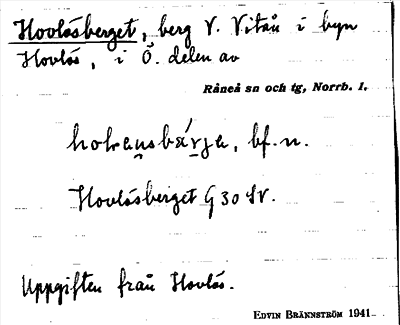 Hovlösberget, berg V. Vitån i byn
Hovlös, i Ö. delen av
Råneå sn och tg, Norrb. l.
bf. n.
Hovlösberget G 30 SV.
Uppgiften från Hovlös.
EDVIN BRÄNNSTRÖM 1941